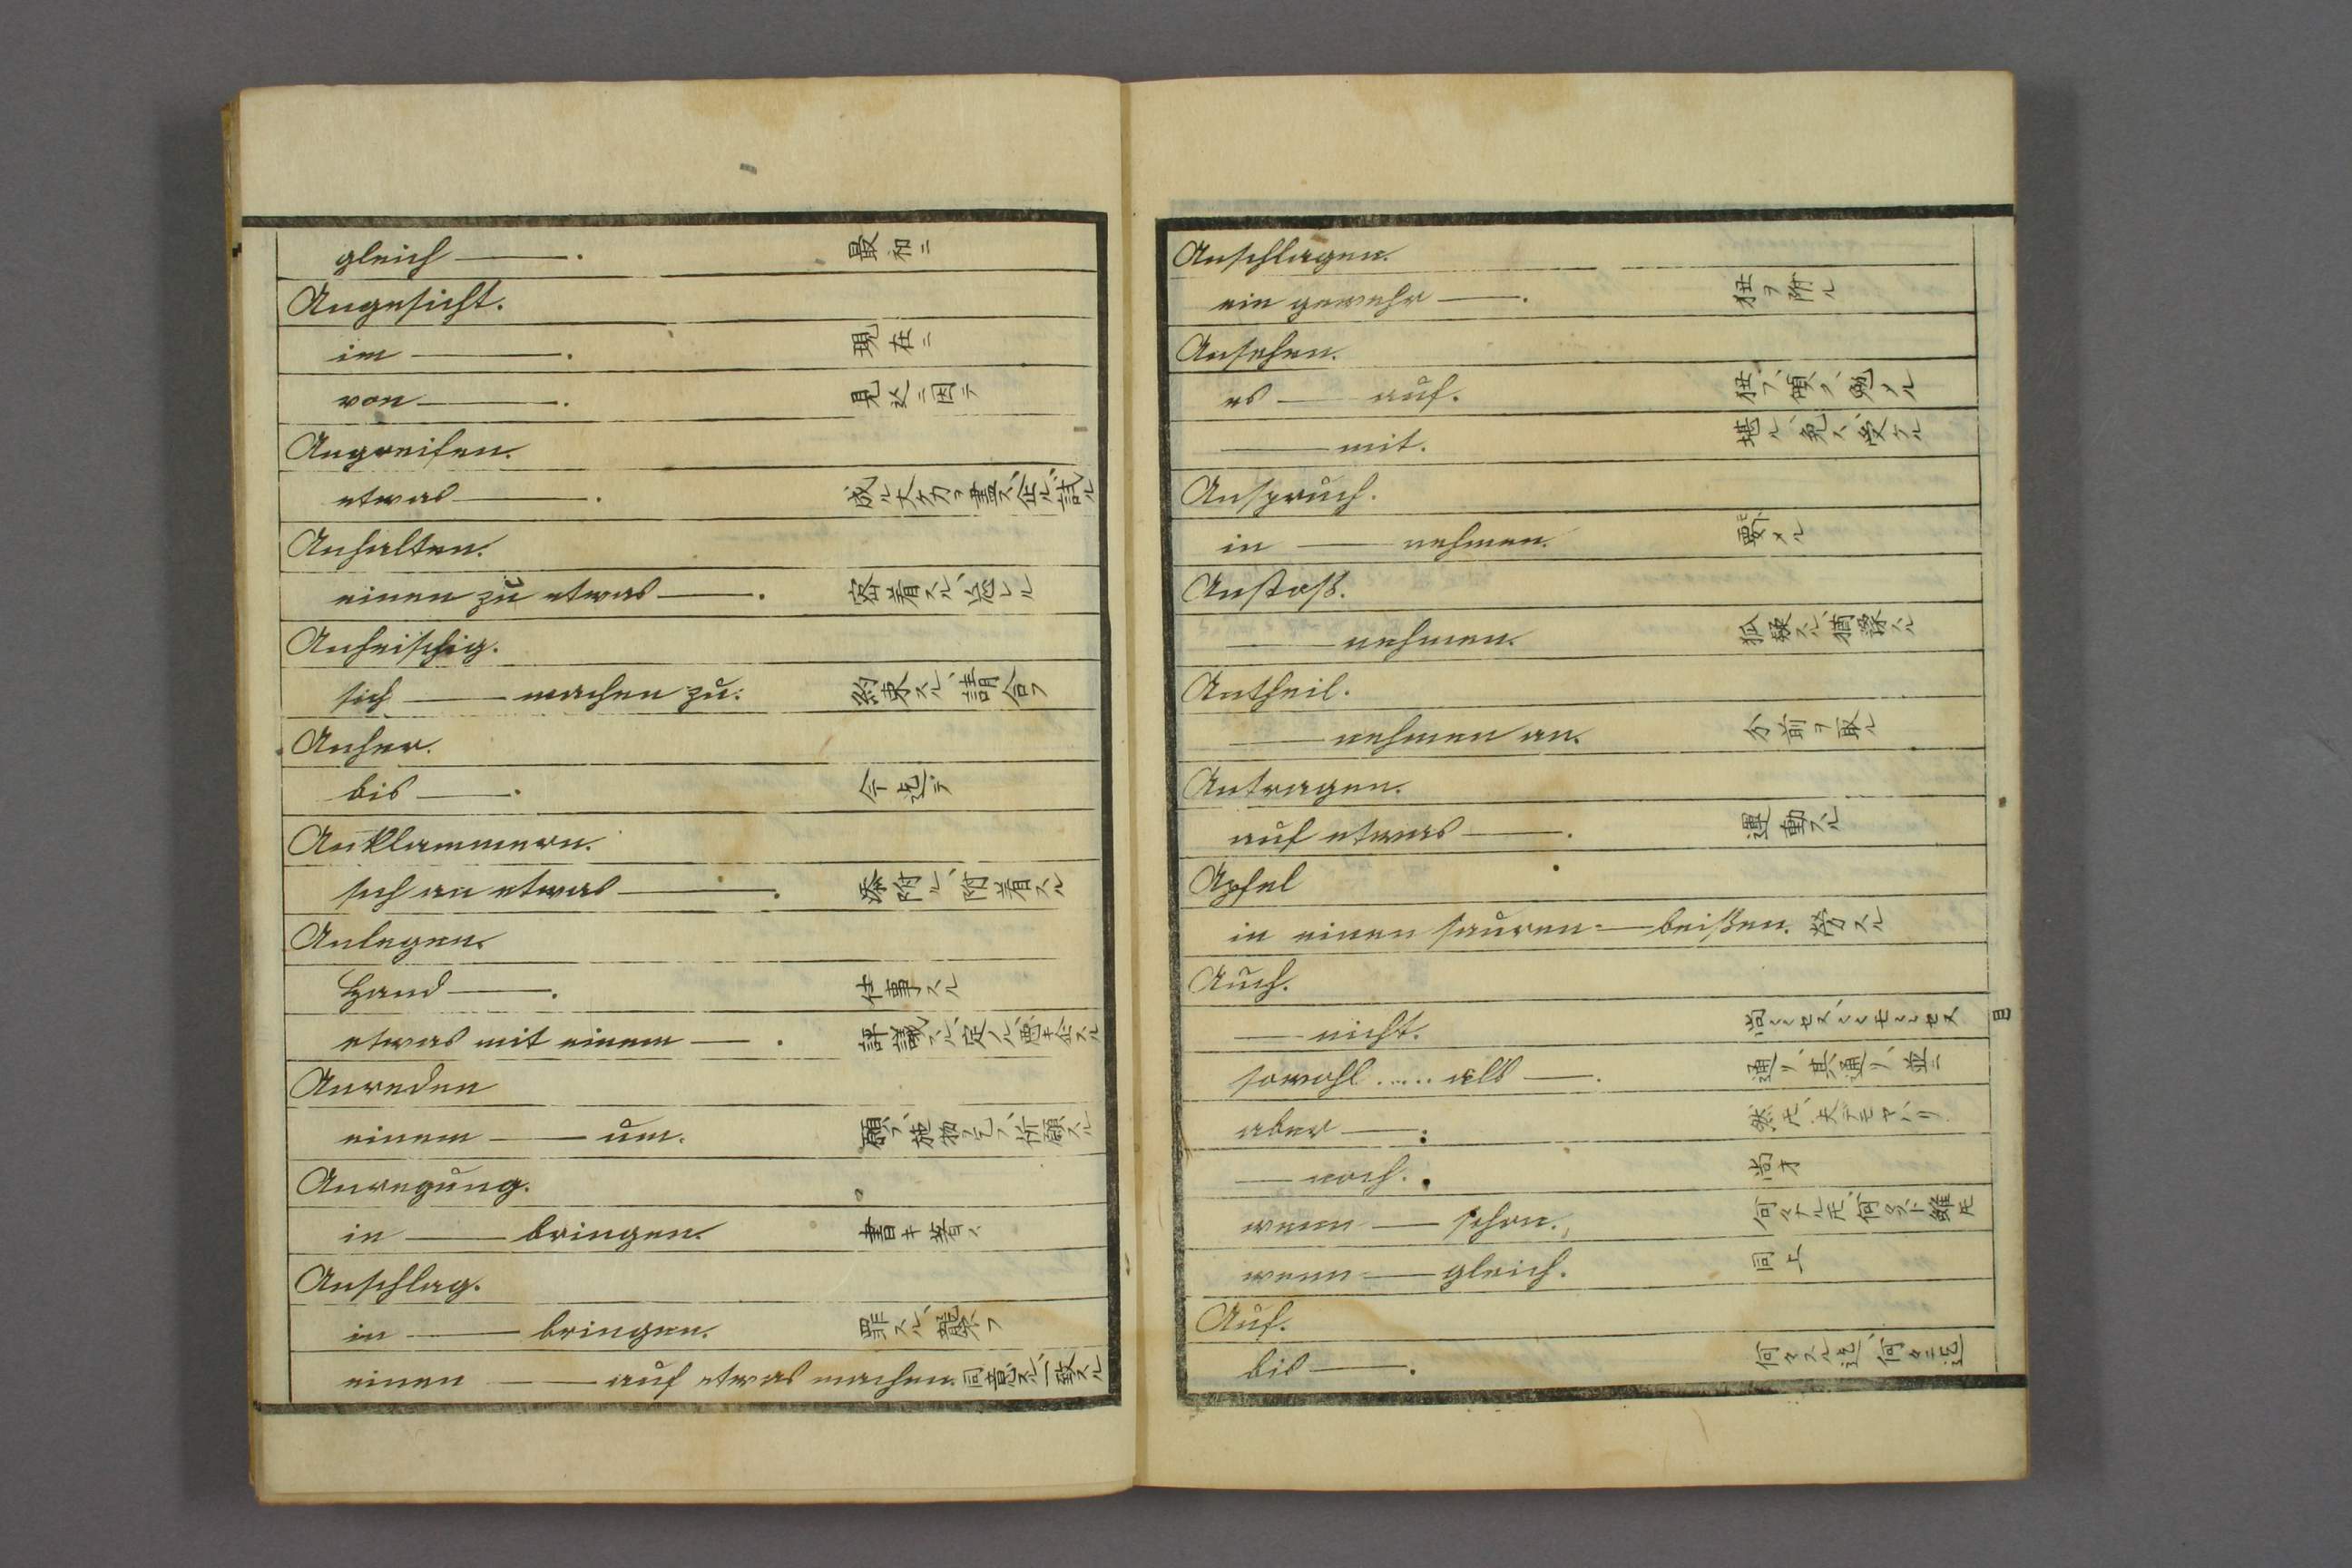 gleich ——. 最初ニ
Angesicht.
im ——. 現在ニ
von ——. 見込ニ因テ
Angreifen.
etwas ——. 成ル丈ケ力ヲ盡ス、企ル、試ル
Anhalten.
einen zu etwas ——. 密着スル
Anheischig.
sich —— machen zu. 約束スル、請合フ
Anher.
bis ——. 今迄デ
Anklammern.
sich an etwas ——. 添附ル、附着スル
Anlegen.
Hand ——. 仕事スル
etwas mit einem ——. 評議スル、定ル
Anreden
einem —— um. 願フ、施物ヲ乞フ、祈願スル
Anregung.
in —— bringen. 書キ著ス
Anschlag.
in —— bringen. 罪スル、襲フ
einen —— auf etwas machen. 同意スル、一致スル
Anschlagen.
ein gewehr ——. 狃ヲ附ル
Ansehen.
es —— auf. 狃フ、傾ク、勉メル
—— mit. 堪ル、免ス、受ケル
Anspruch.
in —— nehmen. 要メル
Anstoß.
—— nehmen. 狐疑スル、猶豫スル
Antheil.
—— nehmen an. 分前ヲ取ル
Antragen.
auf etwas ——. 運動スル
Apfel
in einen sauren —— beißen. 労スル
Auch.
—— nicht.
sowohl ..... als ——. 通リ、其通リ、並ニ
aber ——. 然モ、夫デモヤハリ
—— noch. 尚ホ
wenn —— schon.
wenn —— gleich. 同上
Auf.
bis ——. 何々スル迄、何々ニ迄